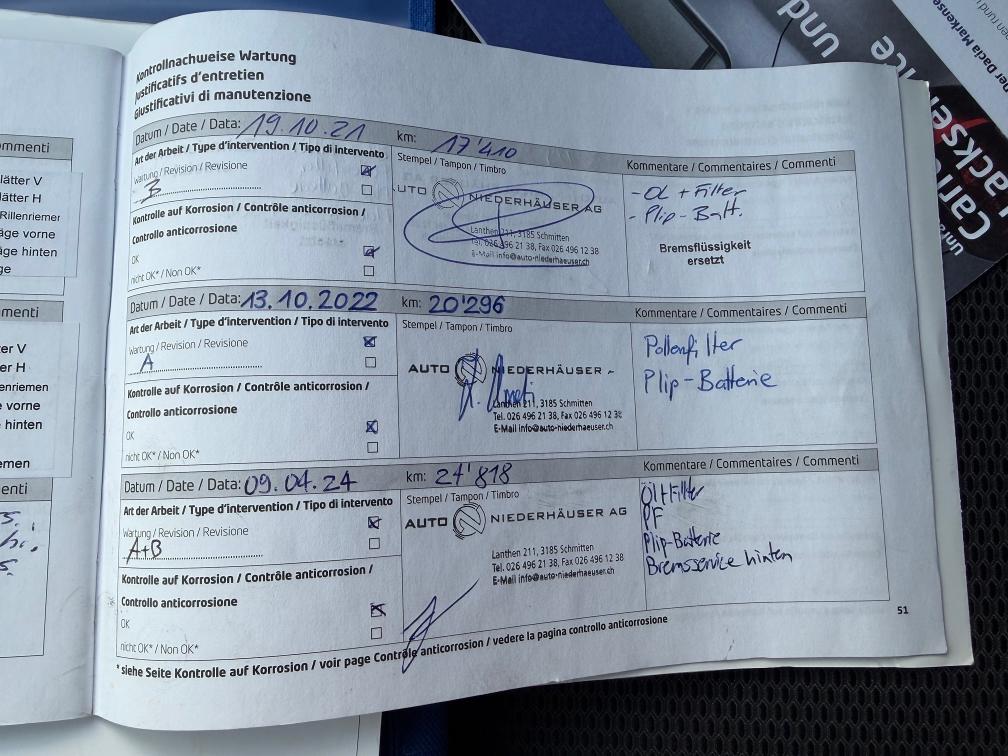 Kontrollnachweise Wartung
Justificatifs d'entretien
Giustificativi di manutenzione
Datum / Date / Data: 19.10.21 km: 17'410
Art der Arbeit / Type d'intervention / Tipo di intervento
Wartung / Revision / Revisione
B
Kontrolle auf Korrosion / Contrôle anticorrosion /
Controllo anticorrosione
OK
nicht OK* / Non OK*
Stempel / Tampon / Timbro
AUTO NIEDERHÄUSER AG
Lanthen 211, 3185 Schmitten
Tel. 026 496 21 38, Fax 026 496 12 38
E-Mail info@auto-niederhaeuser.ch
Kommentare / Commentaires / Commenti
- Öl + Filter
- Plip-Batt.
Bremsflüssigkeit
ersetzt
Datum / Date / Data: 13.10.2022 km: 20'296
Art der Arbeit / Type d'intervention / Tipo di intervento
Wartung / Revision / Revisione
A
Kontrolle auf Korrosion / Contrôle anticorrosion /
Controllo anticorrosione
OK
nicht OK* / Non OK*
Stempel / Tampon / Timbro
AUTO NIEDERHÄUSER
Lanthen 211, 3185 Schmitten
Tel. 026 496 21 38, Fax 026 496 12 38
E-Mail info@auto-niederhaeuser.ch
Kommentare / Commentaires / Commenti
Pollenfilter
Plip-Batterie
Datum / Date / Data: 09.04.24 km: 24'818
Art der Arbeit / Type d'intervention / Tipo di intervento
Wartung / Revision / Revisione
A+B
Kontrolle auf Korrosion / Contrôle anticorrosion /
Controllo anticorrosione
OK
nicht OK* / Non OK*
Stempel / Tampon / Timbro
AUTO NIEDERHÄUSER AG
Lanthen 211, 3185 Schmitten
Tel. 026 496 21 38, Fax 026 496 12 38
E-Mail info@auto-niederhaeuser.ch
Kommentare / Commentaires / Commenti
Öl+Filter
PF
Plip-Batterie
Bremsservice hinten
* siehe Seite Kontrolle auf Korrosion / voir page Contrôle anticorrosion / vedere la pagina controllo anticorrosione
51